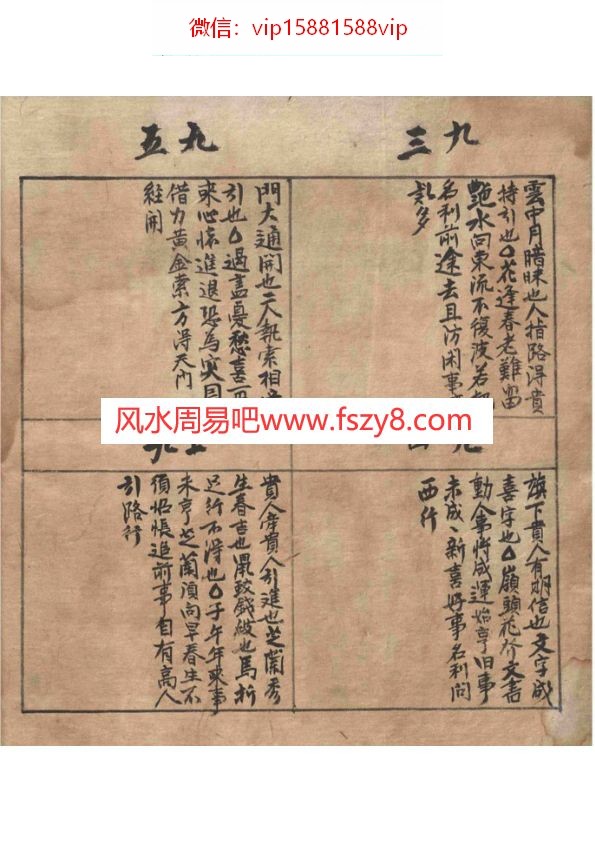 微信：vip15881588vip
九三
雲中月暗昧也人指路得貴
持引也〇花逢春老難留
艷水向東流不復波若
名利前途去且防閑事
訟多
九五
門大通開也二人執索相
引也〇過盡憂愁喜
來心懷進退恐為災
借力黃金索方得天門
經開
风水周易吧www.fszy8.com
九
旗下貴人有明信也文字成
喜字也〇嶺頭花於文書
動人事將成運始亨旧事
未成、新喜好事名利向
西行
貴人牽貴人引進也芝蘭秀
生春吉也鼠致錢做也馬折
足行不得也〇子午年來事
未亨芝蘭須向早春生不
須怊悵追前事自有高人
引路行